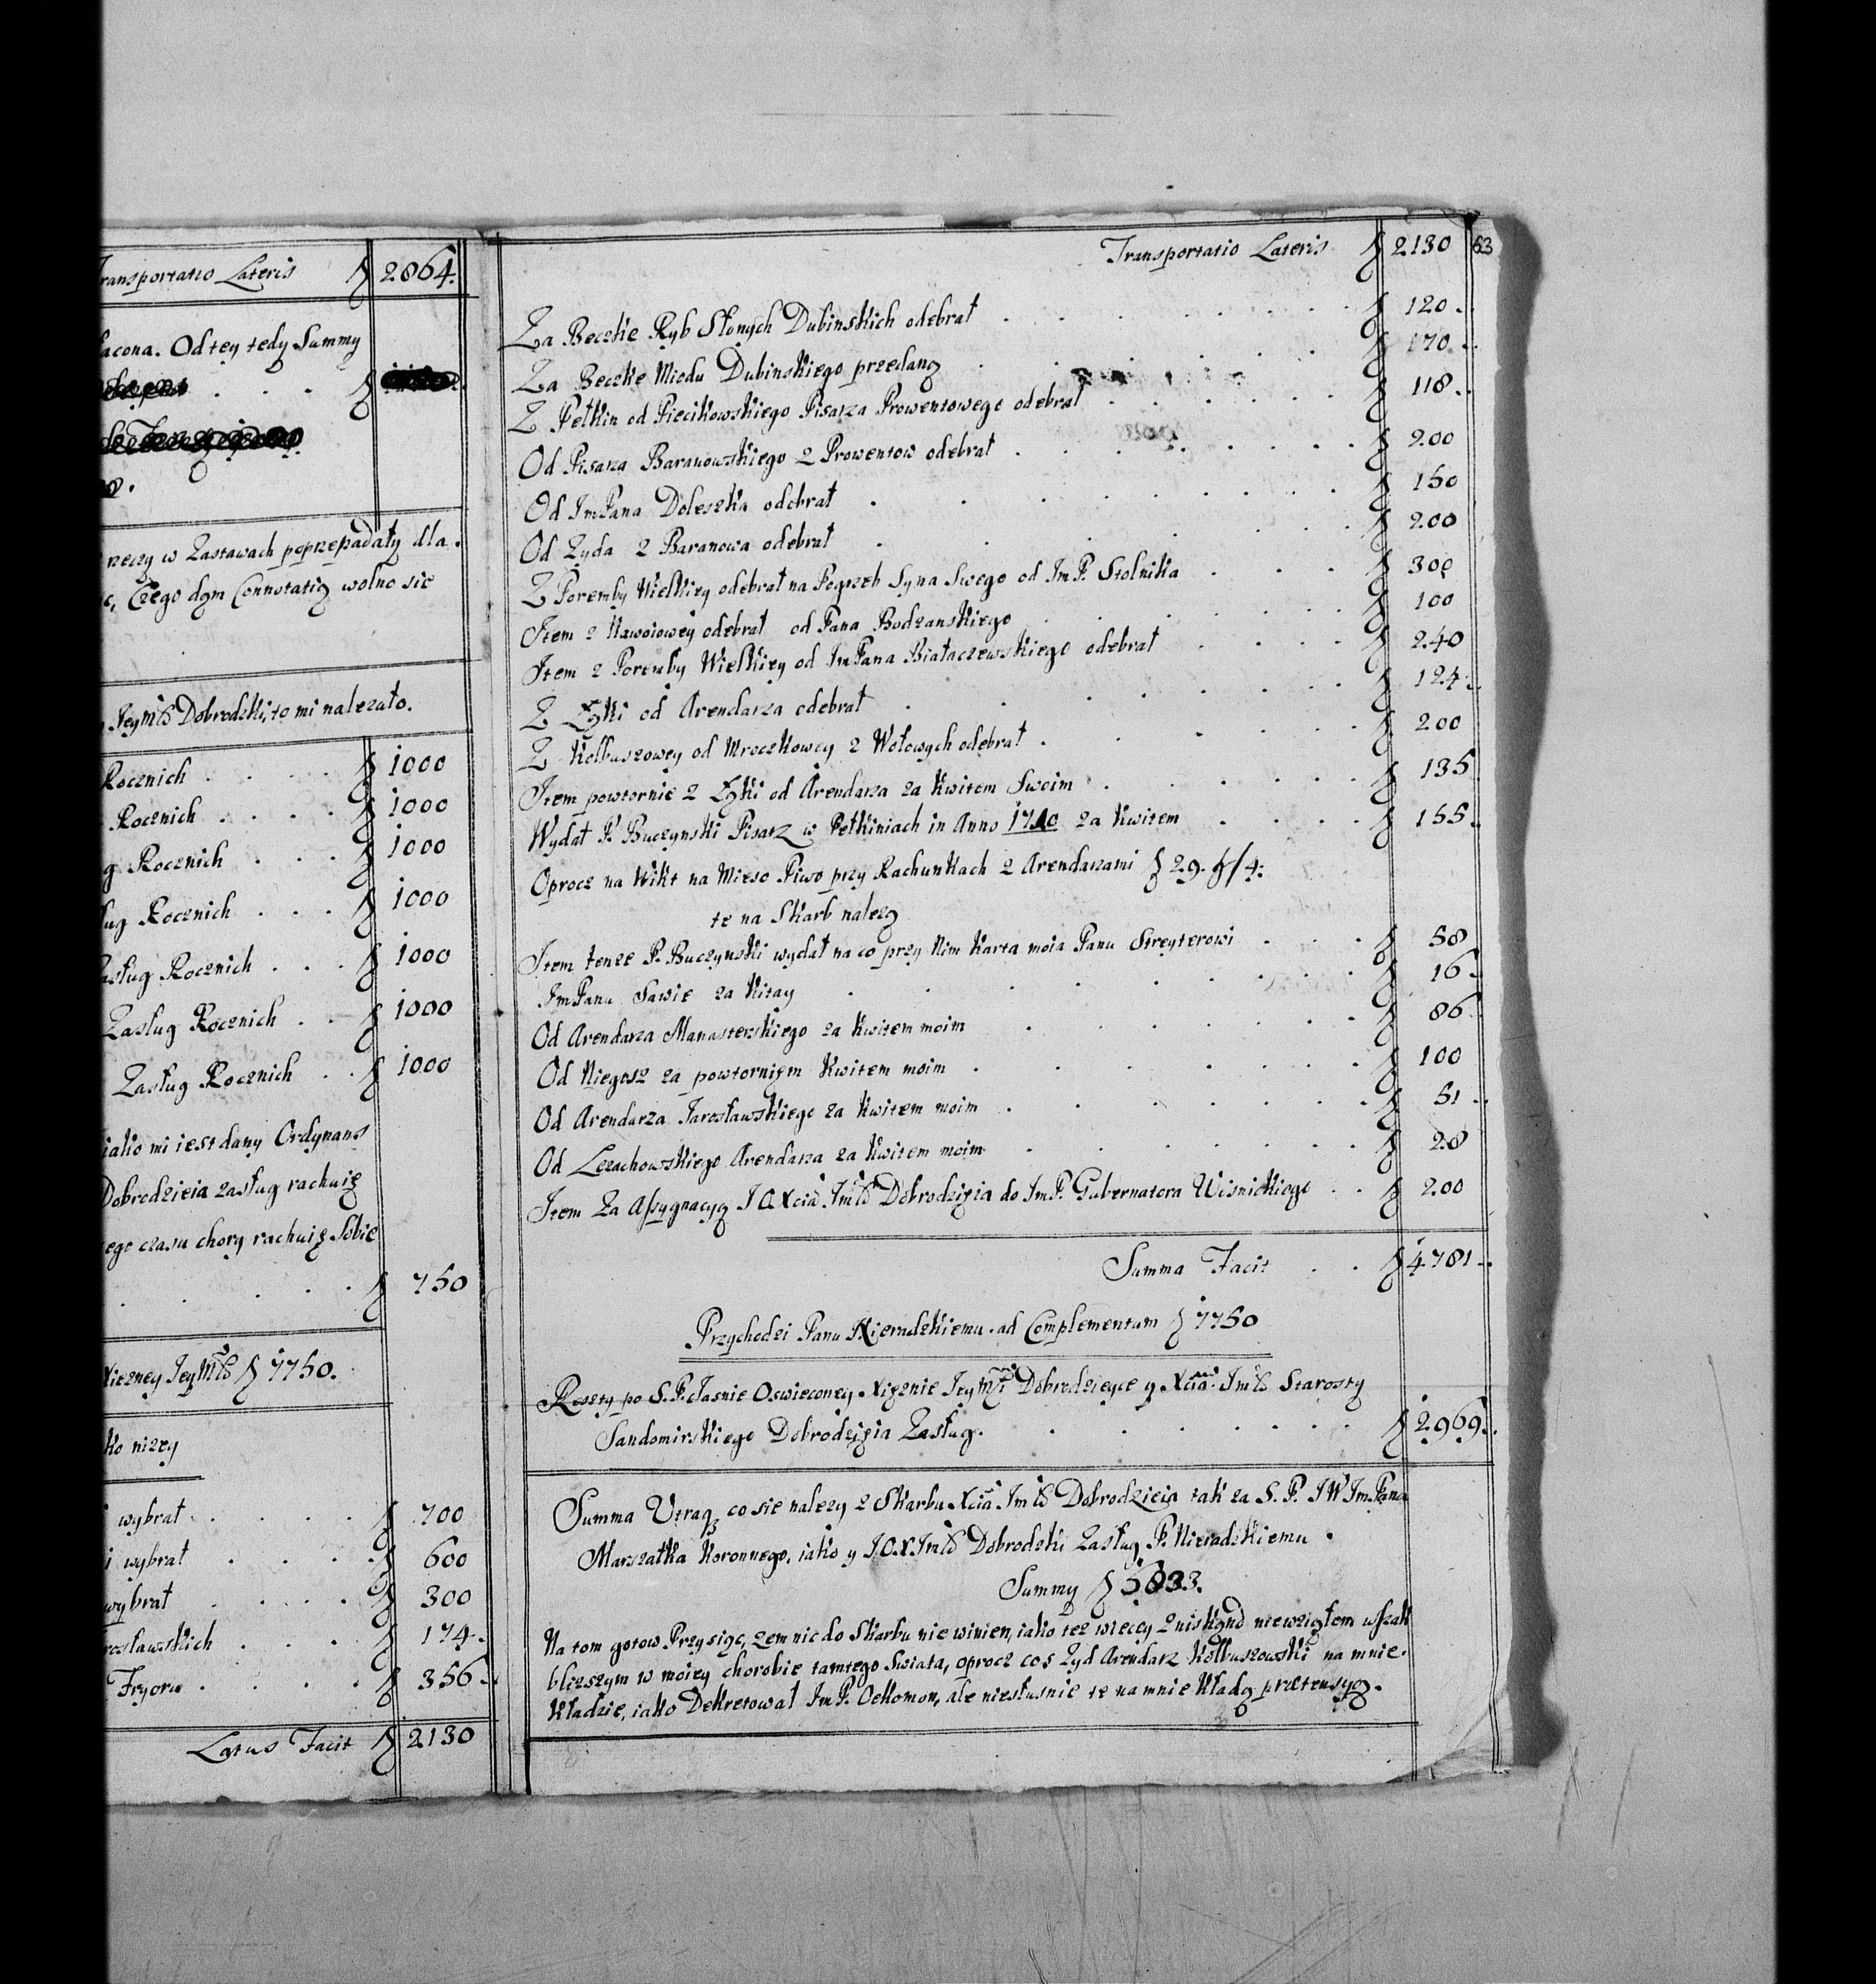 Transportatio Lateris ƒ 2864.
łacona. Od tey tedy Summy
rzeczy w Zastawach poprzepadały dla.
Czego dom Connotatią wolno sie
Jey Mśś Dobrodzki, to mi nalezało.
Rocznich . . . . ƒ 1000
Rocznich . . . . ƒ 1000
g Rocznich . . . ƒ 1000
ług Rocznich . . . ƒ 1000
asług Rocznich . . . ƒ 1000
Zasług Rocznich . . ƒ 1000
Zasług Rocznich . . ƒ 1000
iako mi iest dany Ordynans
Dobrodzieia zasług rachuię
ego czasu chory rachuię Sobie
. . . . . ƒ 750
Xiezney Jey Mśś ƒ 7750.
ko nizey
i wybrał . . . . ƒ 700
i wybrał . . . . ƒ 600
wybrał . . . . ƒ 300
rosławskich . . . ƒ 174.
Fryoru . . . . ƒ 356.
Latus Facit ƒ 2130
Transportatio Lateris ƒ 2130 63
Za Beczke Ryb Słonych Dubinskich odebrał . . . ƒ 120.
Za Beczke Miodu Dubinskiego przedaną . . . ƒ 170.
Z Pełkin od Piecikowskiego Pisarza Prowentowego odebrał . . . ƒ 118.
Od Pisarza Baranowskiego z Prowentow odebrał . . . ƒ 200
Od Im Pana Doleszka odebrał . . . ƒ 150
Od Zyda z Baranowa odebrał . . . ƒ 200
Z Poremby Wielkiey odebrał na Pogrzeb Syna Swego od Im P. Stolnika . . . ƒ 300
Item z Nawoiowey odebrał od Pana Budzanskiego . . . ƒ 100
Item z Poremby Wielkiey od Im Pana Białaczewskiego odebrał . . . ƒ 240
Z Łąki od Arendarza odebrał . . . ƒ 124.
Z Kolbuszowey od Mroczkowey z Wołowych odebrał . . . ƒ 200
Item powtornie z Łąki od Arendarza za Kwitem Swoim . . . ƒ 135
Wydał P. Buczynski Pisarz w Pełkiniach in Anno 1710 za Kwitem . . . ƒ 155.
Oprocz na Wikt na Mieso Piwo przy Rachunkach z Arendarzami ƒ 29. ꞵ/4.
te na Skarb nalezą
Item tenze P. Buczynski wydał na co przy Nim Karta moia Panu Streyterowi . . . ƒ 58
Im Panu Sawie za Kitay . . . ƒ 16.
Od Arendarza Manasterskiego za Kwitem moim . . . ƒ 86
Od Niegosz za powtornięm Kwitem moim . . . ƒ 100
Od Arendarza Jarosławskiego za Kwitem moim . . . ƒ 51.
Od Lezachowskiego Arendarza za Kwitem moim . . . ƒ 28
Item Za Assygnacyą J O Xcia Imśś Dobrodzieia do Im P. Gubernatora Wisnickiego . . ƒ 200
Summa Facit . . ƒ 4781.
Przychodzi Panu Nieradzkiemu ad Complementum ƒ 7750
Reszty po S. P. Jasnie Oswieconey Xięznie Jey Mśći Dobrodzieyce y Xcia Imśś Starosty
Sandomirskiego Dobrodzieia Zasług. . . . ƒ 2969.
Summa Utraq3 co sie nalezy z Skarbu Xcia Imśś Dobrodzieia tak za S. P. J W Im Pana
Marszałka Koronnego, iako y J. O. X. Imśś Dobrodzki Zasług P. Nieradzkiemu.
Summy ƒ 5833.
Na tom gotow Przysiąc, zem nic do Skarbu nie winien, iako tez wiecey zniskąnd niewziąłem wszak
blizszym w moiey chorobie tamtego Swiata, oprocz cos Zyd Arendarz Kolbuszowski na mnie.
Kładzie, iako Dekretował Im P. Oekonom, ale niesłusnie te na mnie Kładą prætensyą.